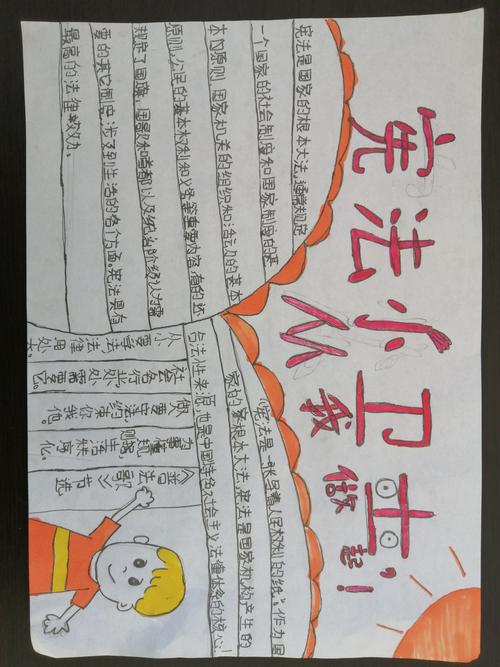 宪法小卫士"
从我做起!
宪法是国家的根本大法,通常规定
一个国家的社会制度和国家制度的基
本的原则 国家机关的组织和活动的基本
原则,公民的基本权利和义务等重要内容,有的还
规定了国旗、国歌和首都以及统治阶级认为重
要的其它制度,涉及到生活的各个方面。宪法具有
最高的法律效力。
《宪法是一张写着人民权利的纸》,作为国
家的家根本大法,宪法是国家机构产生的
合法性来源,也是中国特色社会主义法律体系的核心!
小要学法法律用处大。
社会各行业处处需要它。
做要守法约束你我他。